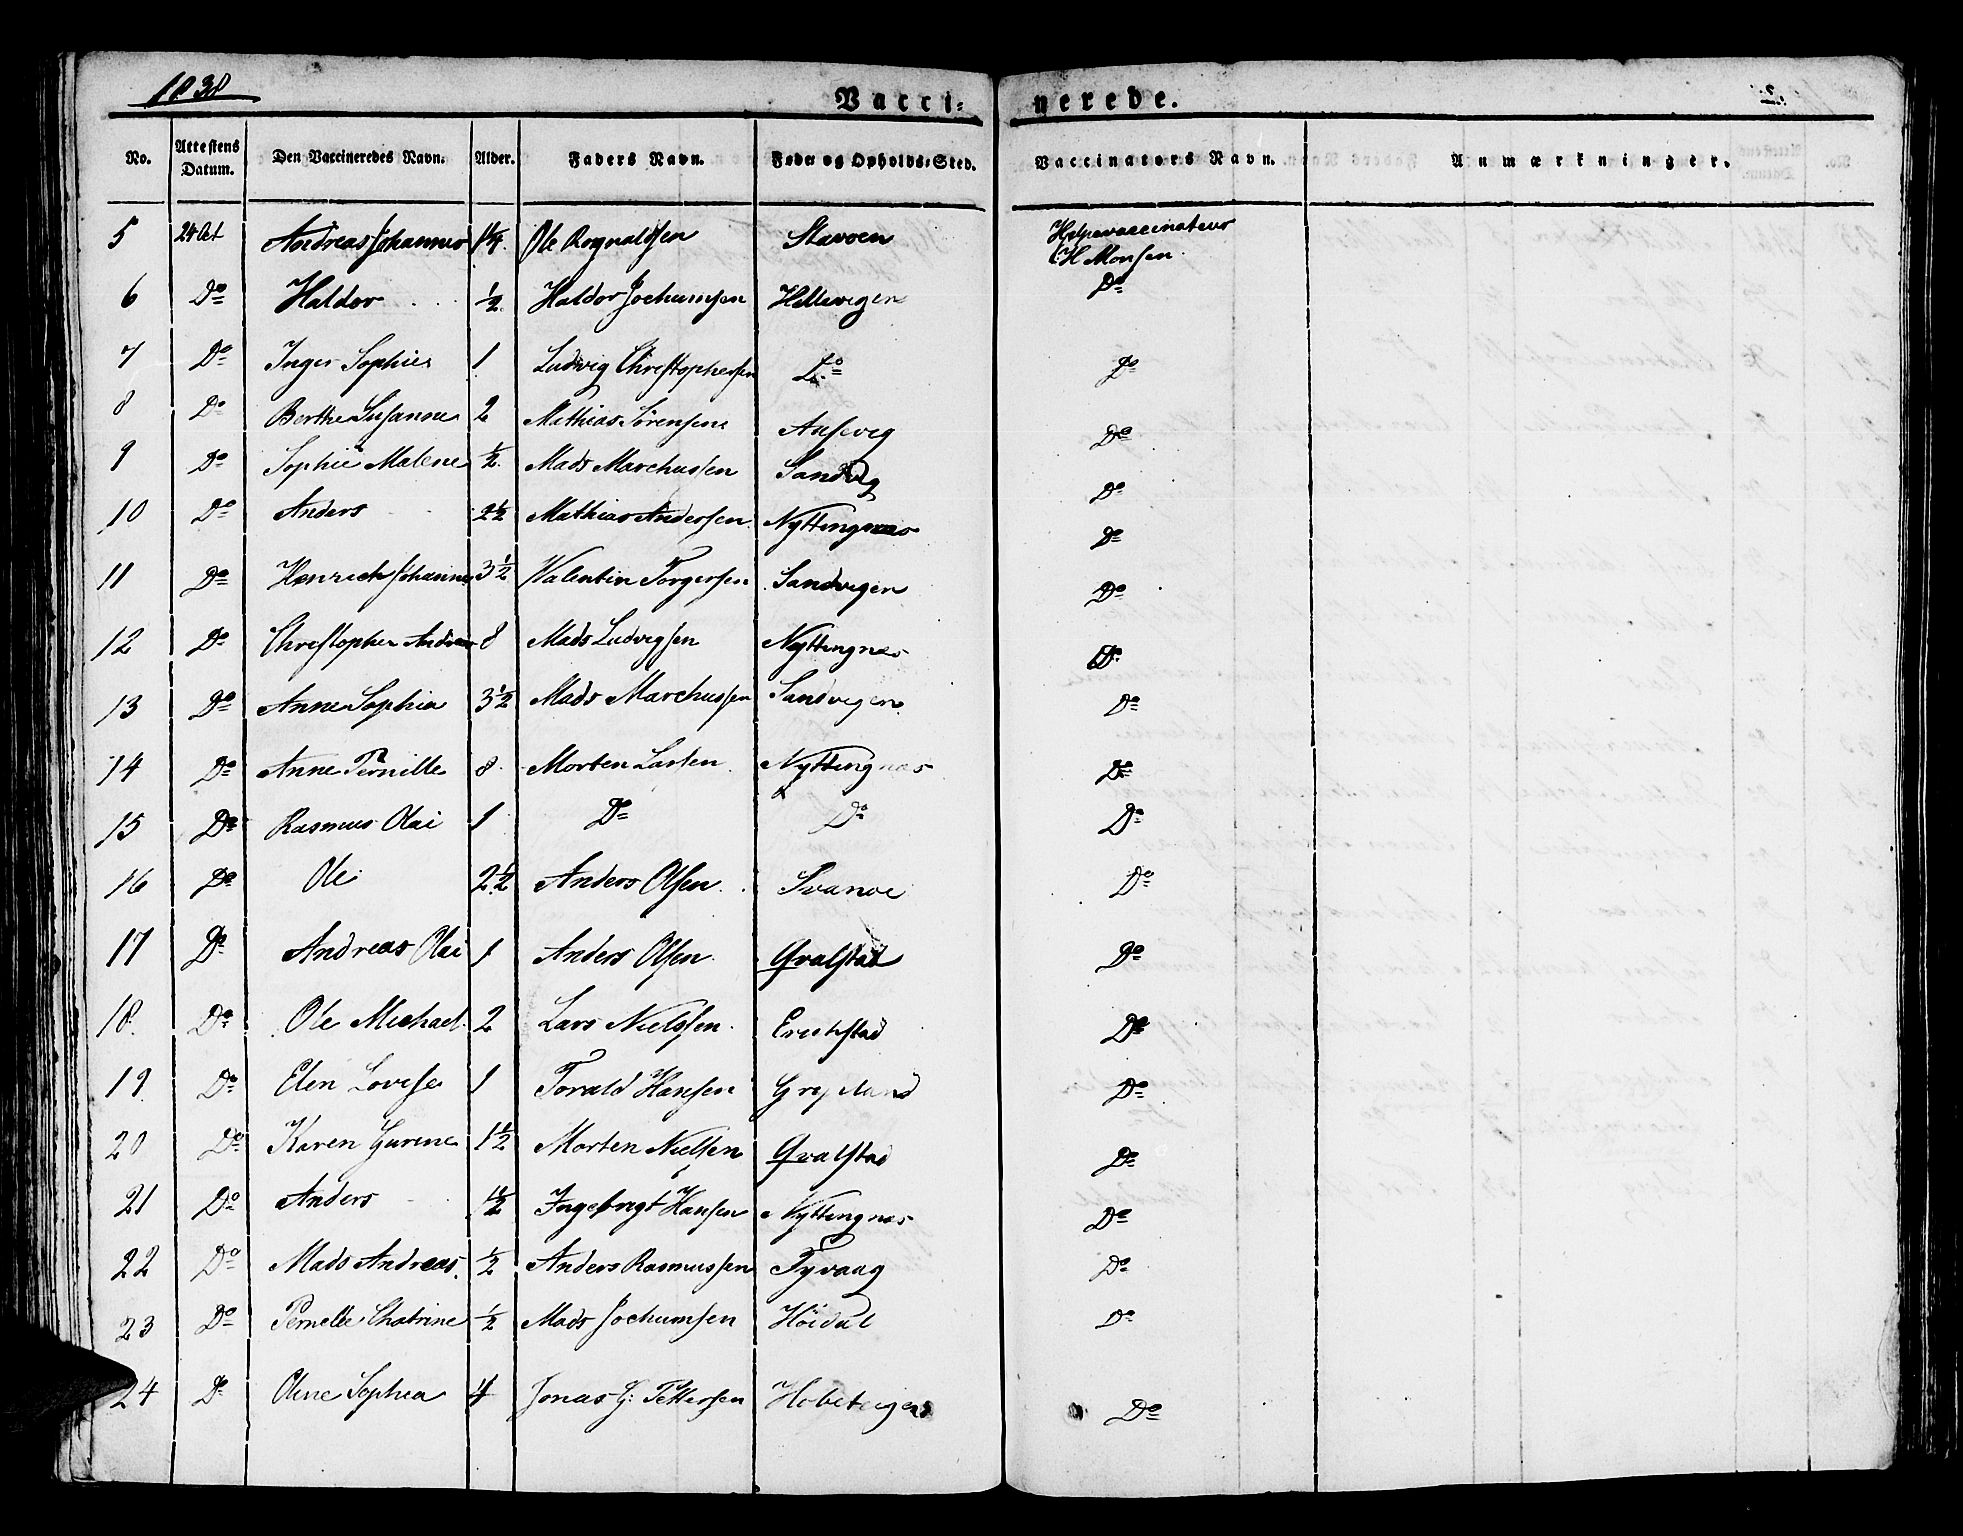 1838
Vacci=
nerede.
No. Attestens Datum. Den Vaccineredes Navn. Alder. Faders Navn. Føde og Opholds-Sted. Vaccinators Navn. Anmærkninger.
5 24 Oct Andreas Johannes 1¼. Ole Rognaldsen Stavoen Hjelpevaccinateur
H Monsen.
6 Do Haldor ½ Haldor Jochumsen Hellevigen Do
7 Do Inger Sophie 1 Ludvig Christophersen Do Do
8 Do Berthe Susanne 2 Mathias Sørensen Aaseveg Do
9 Do Sophie Malene ½ Mads Marchussen Sandvig Do
10 Do Anders 2½ Mathias Andersen Nyttingnæs Do
11 Do Henrich Johannes 3½ Valentin Torgersen Sandvigen Do
12 Do Christopher Andreas 8 Mads Ludvigsen Nyttingnæs Do
13 Do Anne Sophia 3½ Mads Marchussen Sandvigen Do
14 Do Anne Pernille 8 Morten Larsen Nyttingnæs Do
15 Do Rasmus Olai 1 Do Do Do
16 Do Ole 2½ Anders Olsen Svanoe Do
17 Do Andreas Olai 1 Anders Olsen Qvalstad Do
18. Do Ole Michael 2 Lars Nielssen Erichstad Do
19. Do Elen Lovise 1 Torald Hansen Do
20 Do Karen Gurine 1½ Morten Nielsen Qvalstad Do
21 Do Anders 1½ Ingebrigt Hansen Nyttingnæs Do
22 Do Mads Andreas ½ Anders Rasmussen Tyvaag Do
23 Do Pernelle Chatrine ½ Mads Jochumsen Höidal Do
24 Do Oline Sophia 4 Jonas G: Pettersen Do